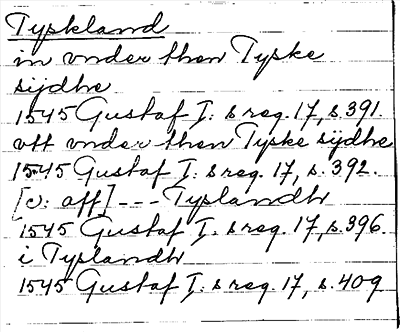 Tyskland
in vnder then Tyske
sijdhe
1545 Gustaf I: s reg. 17, s. 391.
vtt vnder then Tyske sijdhe
1545 Gustaf I: s reg. 17, s. 392.
[v: aff] --- Tyslandh
1545 Gustaf I: s reg. 17, s. 396.
i Tyslandh
1545 Gustaf I: s reg. 17, s. 409